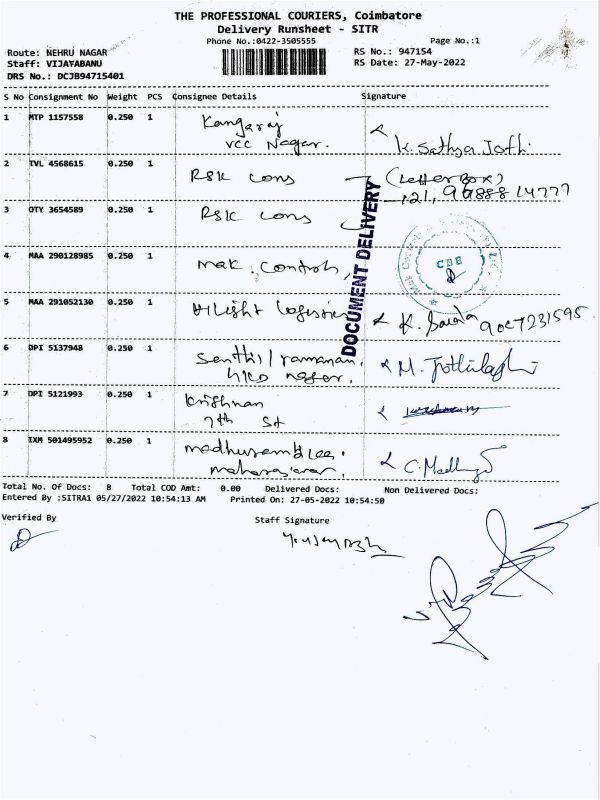 THE PROFESSIONAL COURIERS, Coimbatore
Delivery Runsheet - SITR
Phone No.:0422-3505555 Page No.:1
Route: NEHRU NAGAR RS No.: 947154
Staff: VIJAYABANU RS Date: 27-May-2022
DRS No.: DCJB94715401
S No Consignment No Weight PCS Consignee Details Signature
1 MTP 1157558 0.250 1 Kangaraj
VCC Nagar. K. Sathya Jothi
2 TVL 4568615 0.250 1 RSK Cons (Letter Box)
3 OTY 3654589 0.250 1 RSK Cons
4 MAA 290128985 0.250 1 Mak. Controls, CBE
5 MAA 291052130 0.250 1 Hilight Logistics K.
6 DPI 5137948 0.250 1 Senthil / ramanan. M.
nagar.
7 DPI 5121993 0.250 1 Krishnan
7th St
8 IXM 501495952 0.250 1 C.
DOCUMENT DELIVERY
Total No. Of Docs: 8 Total COD Amt: 0.00 Delivered Docs: Non Delivered Docs:
Entered By :SITRA1 05/27/2022 10:54:13 AM Printed On: 27-05-2022 10:54:50
Verified By Staff Signature